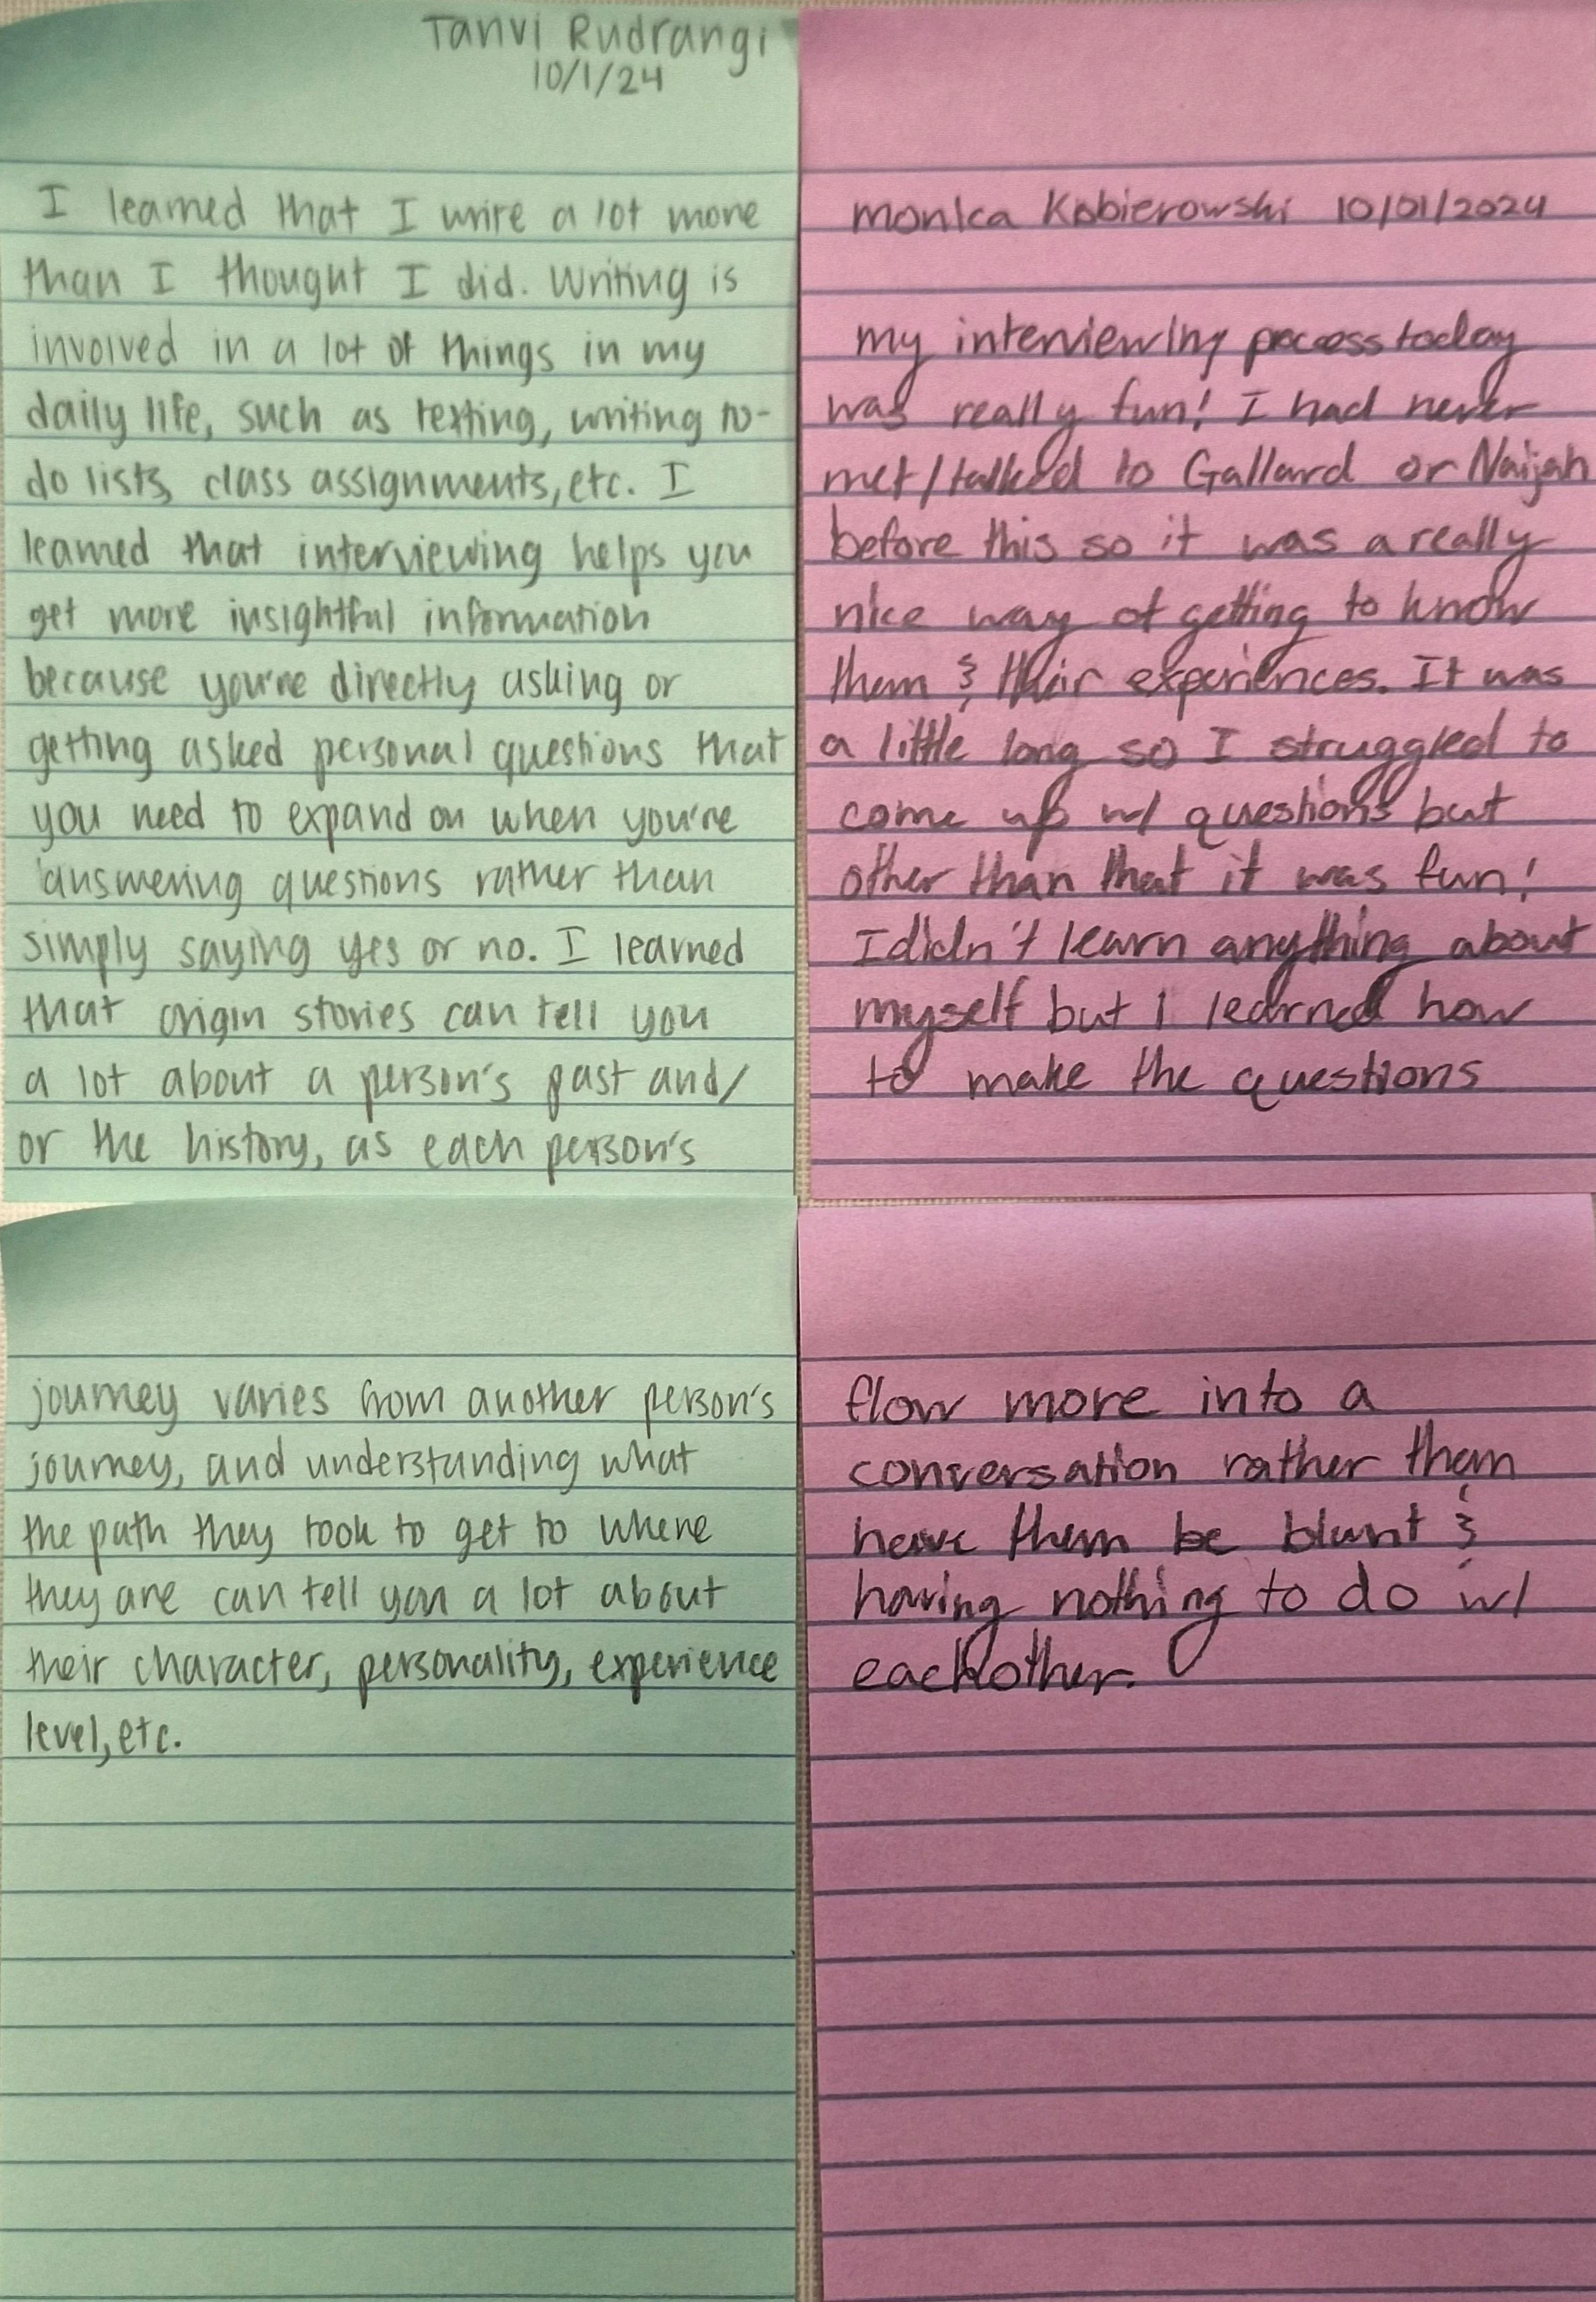 Tanvi Rudrangi
10/1/24
I learned that I write a lot more
than I thought I did. Writing is
involved in a lot of things in my
daily life, such as texting, writing to-
do lists, class assignments, etc. I
learned that interviewing helps you
get more insightful information
because you're directly asking or
getting asked personal questions that
you need to expand on when you're
answering questions rather than
simply saying yes or no. I learned
that origin stories can tell you
a lot about a person's past and/
or the history, as each person's
journey varies from another person's
journey, and understanding what
the path they took to get to where
they are can tell you a lot about
their character, personality, experience
level, etc.
Monica Kobierowski 10/01/2024
my interviewing process today
was really fun! I had never
met/talked to Gallard or Naijah
before this so it was a really
nice way of getting to know
them & their experiences. It was
a little long so I struggled to
come up w/ questions but
other than that it was fun!
I didn't learn anything about
myself but i learned how
to make the questions
flow more into a
conversation rather them
have them be blunt &
having nothing to do w/
eachother.